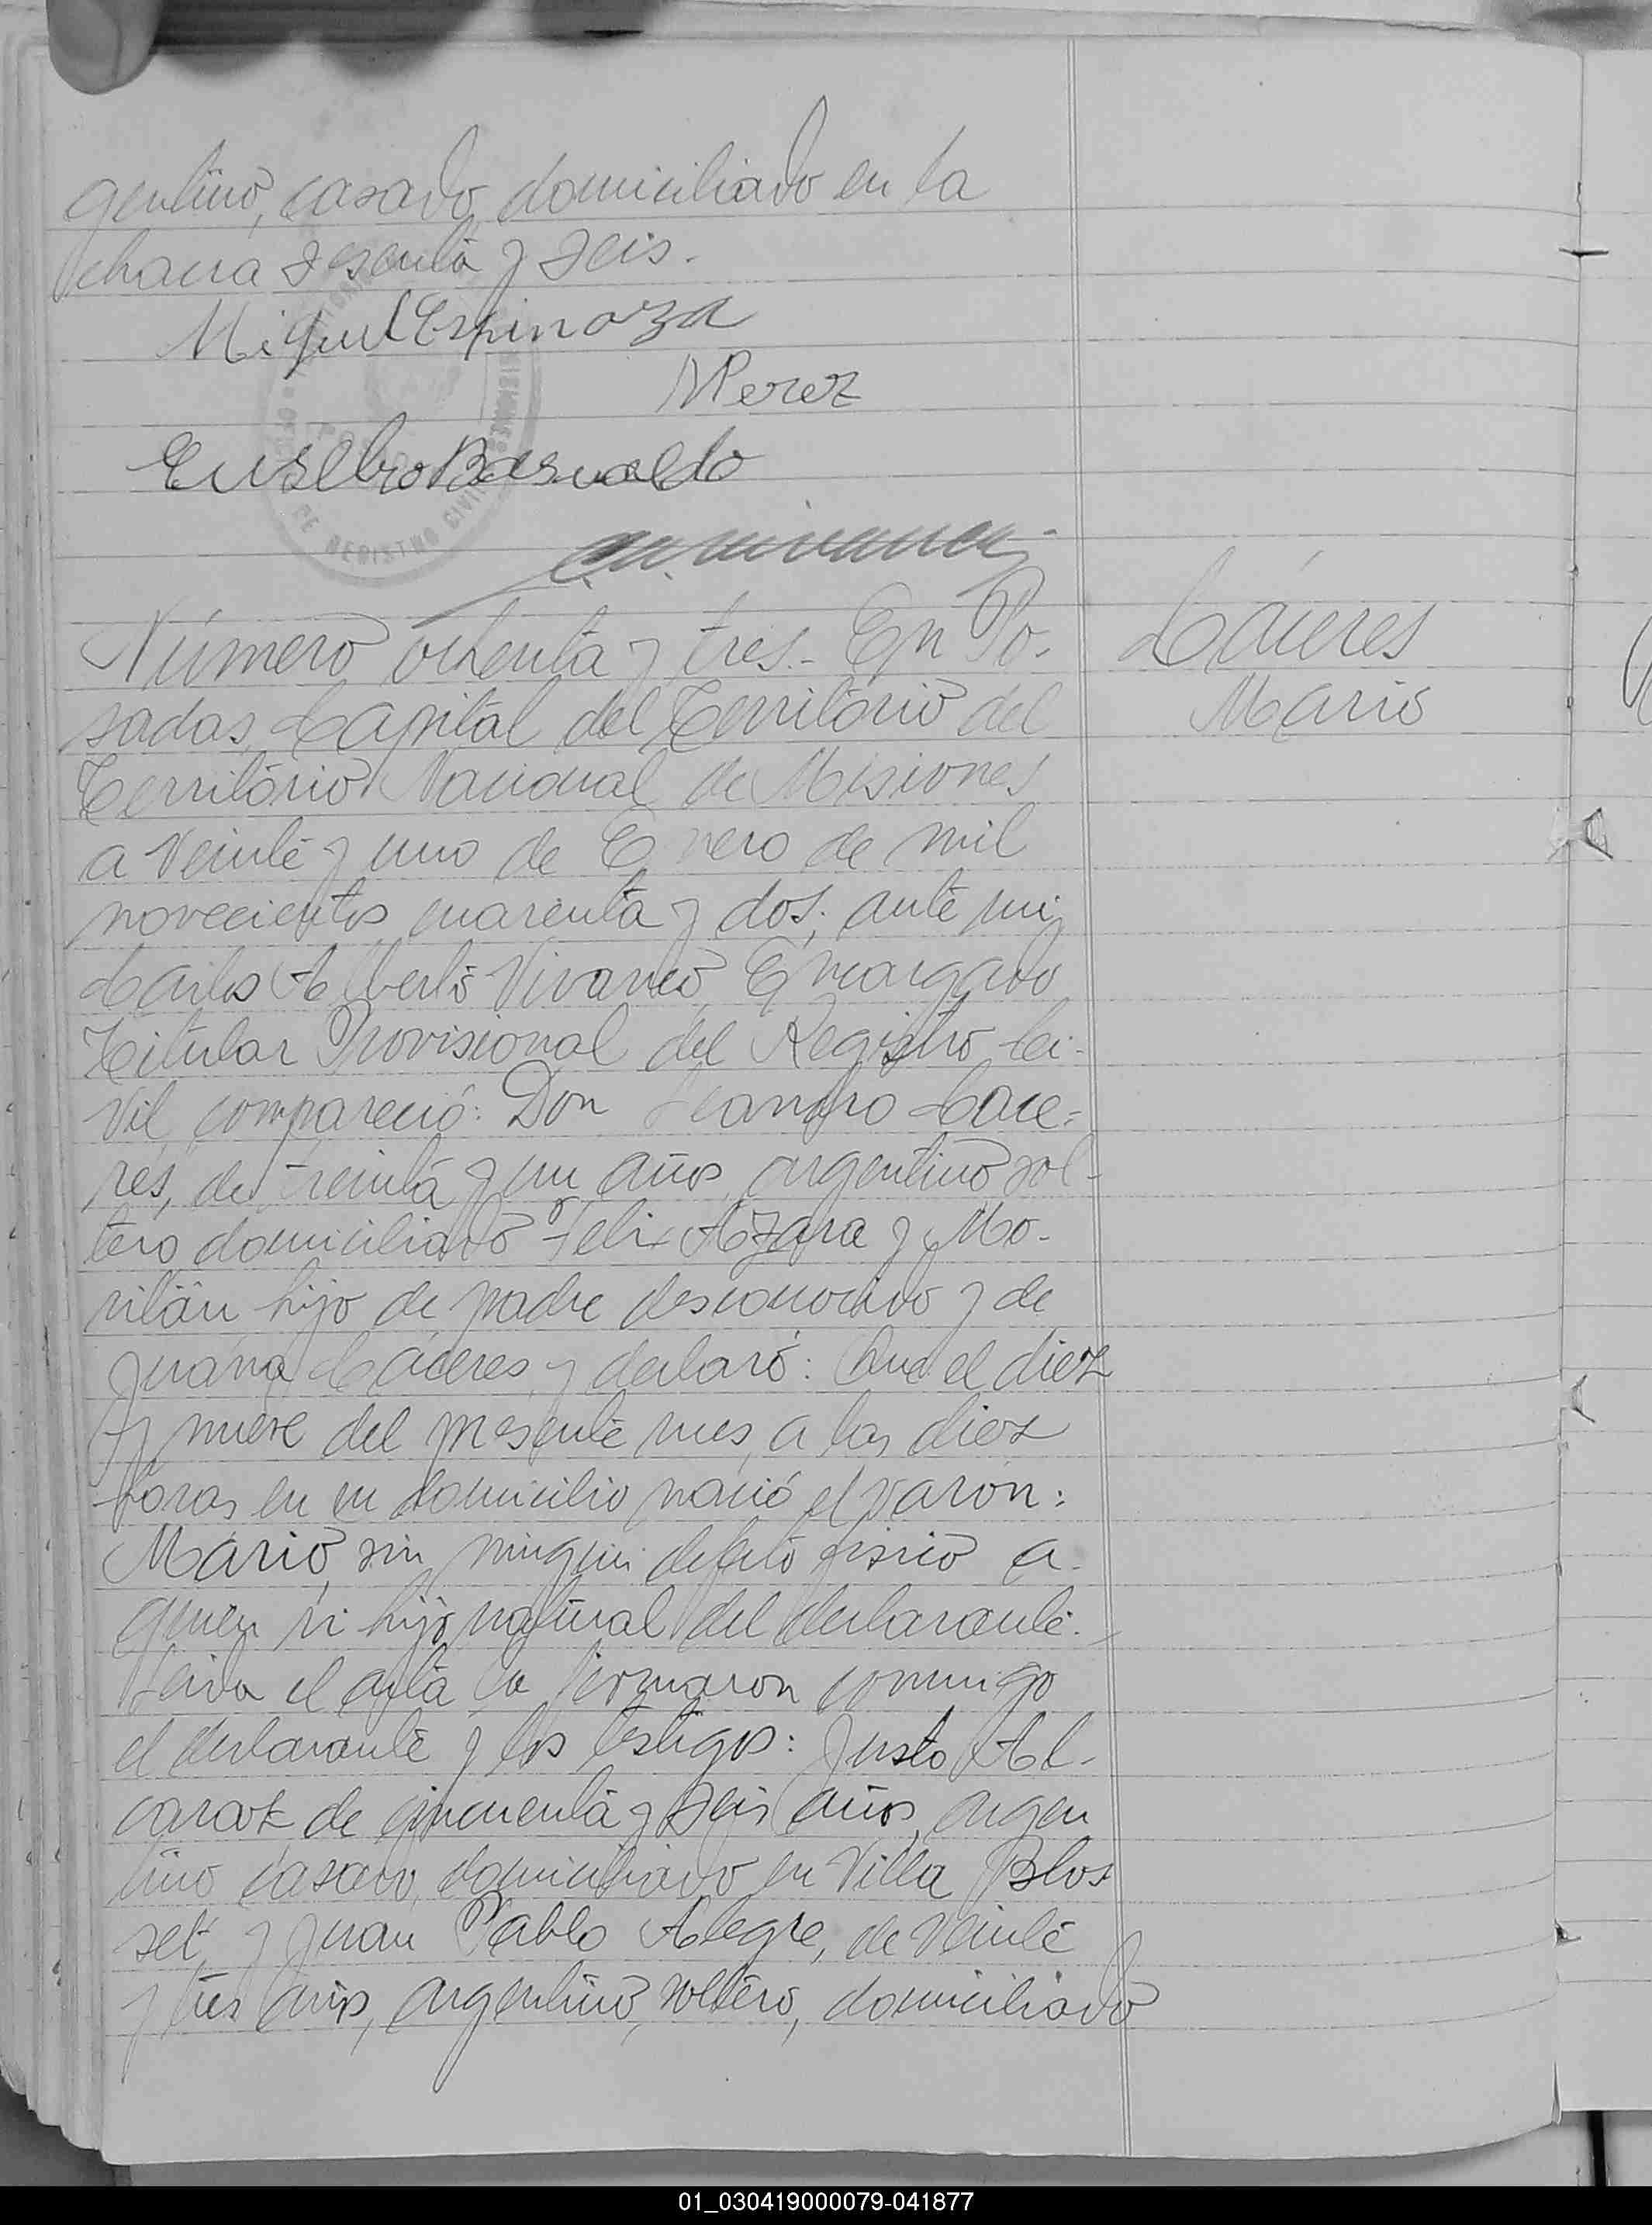 gentino, casado, domiciliado en la
chacra sesenta y seis.
Miguel Espinoza
M Perez
Eusebio Basualdo
Número ochenta y tres.- En Po-
sadas, Capital del Territorio del
Territorio Nacional de Misiones
a veinte y uno de Enero de mil
novecientos cuarenta y dos; ante mi
Carlos Alberto Vivanco, Encargado
Titular Provisional del Registro Ci-
vil, compareció: Don Leandro Cace-
res, de treinta y un años, argentino sol-
tero domiciliado Felix Azara y Mo-
ritán hijo de padre desconocido y de
Juana Cáceres, y declaró: Que el diez
y nueve del presente mes, a las diez
horas en su domicilio nació el varón:
Mario, sin ningun defeto fisico a
quien hijo natural del declarante.
Leida el acta la firmaron conmigo
el declarante y los testigos: Justo Al-
caraz de cincuenta y seis años, argen
tino casado, domiciliado en Villa Blos
set, y Juan Pablo Alegre, de veinte
y tres años, argentino, soltero, domiciliado
Cáceres
Mario
DE REGISTRO CIVIL
MISIONES
01_030419000079-041877